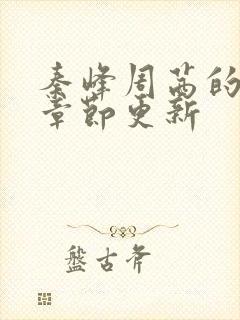 秦峰周茜的
章节更新
盘古斧